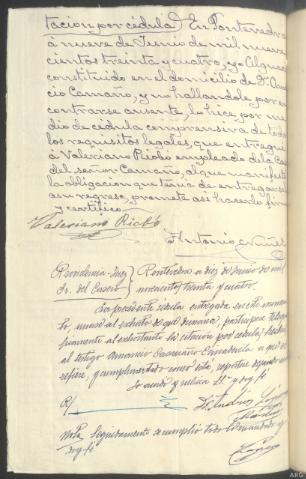 tacion por cédula } En Pontevedra
á nueve de Junio de mil nueve
cientos treinta y cuatro, yo Alguacil
constituido en el domicilio de D.
Camaño, y no hallandole por en
contrarse ausente, lo hice por me
dio de cédula comprensiva de todos
los requisitos legales, que entregué
á Valeriano Riobó empleado de la Casa
del señor Camaño, al que manifesté
la obligacion que tiene de entregarsela
á su regreso, promete así hacerlo firma
y certifico.
Valeriano Riobó
Antonio
Providencia Juez
Sr. del Casero
Pontevedra a diez de Junio de mil
novecientos treinta y cuatro.
La precedente cédula entregada en este momen
to, unase al exhorto de que dimana,
al exhortante la citacion por cédula
al testigo Camaño a que se
refiere, y cumplimentado como está,
Lo acordó y rubrica S.S. y doy fé
Nota. Seguidamente se cumplio todo lo mandado
doy fé
ARG